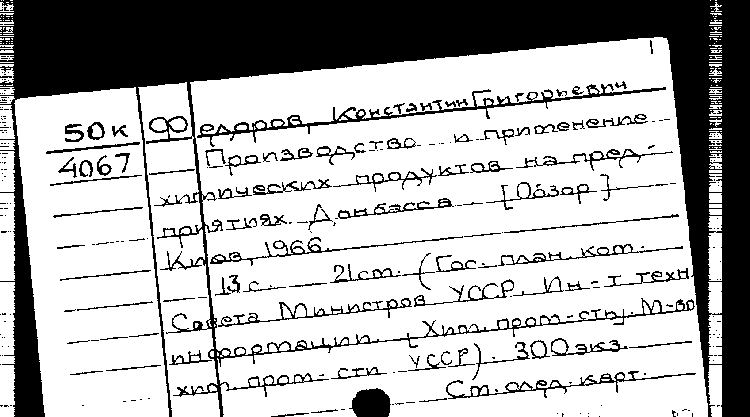 50к Федоров, Константин Григорьевич
4067 Производство и применение
химических продуктов на пред-
приятиях Донбасса [Обзор]
Киев, 1966.
13 с. 21 см. (Гос. план. ком.
Совета Министров УССР. Ин-т техн.
информации. [Хим. пром-сть]. М-во
хим. пром-сти УССР). 300 экз.
См. след. карт.